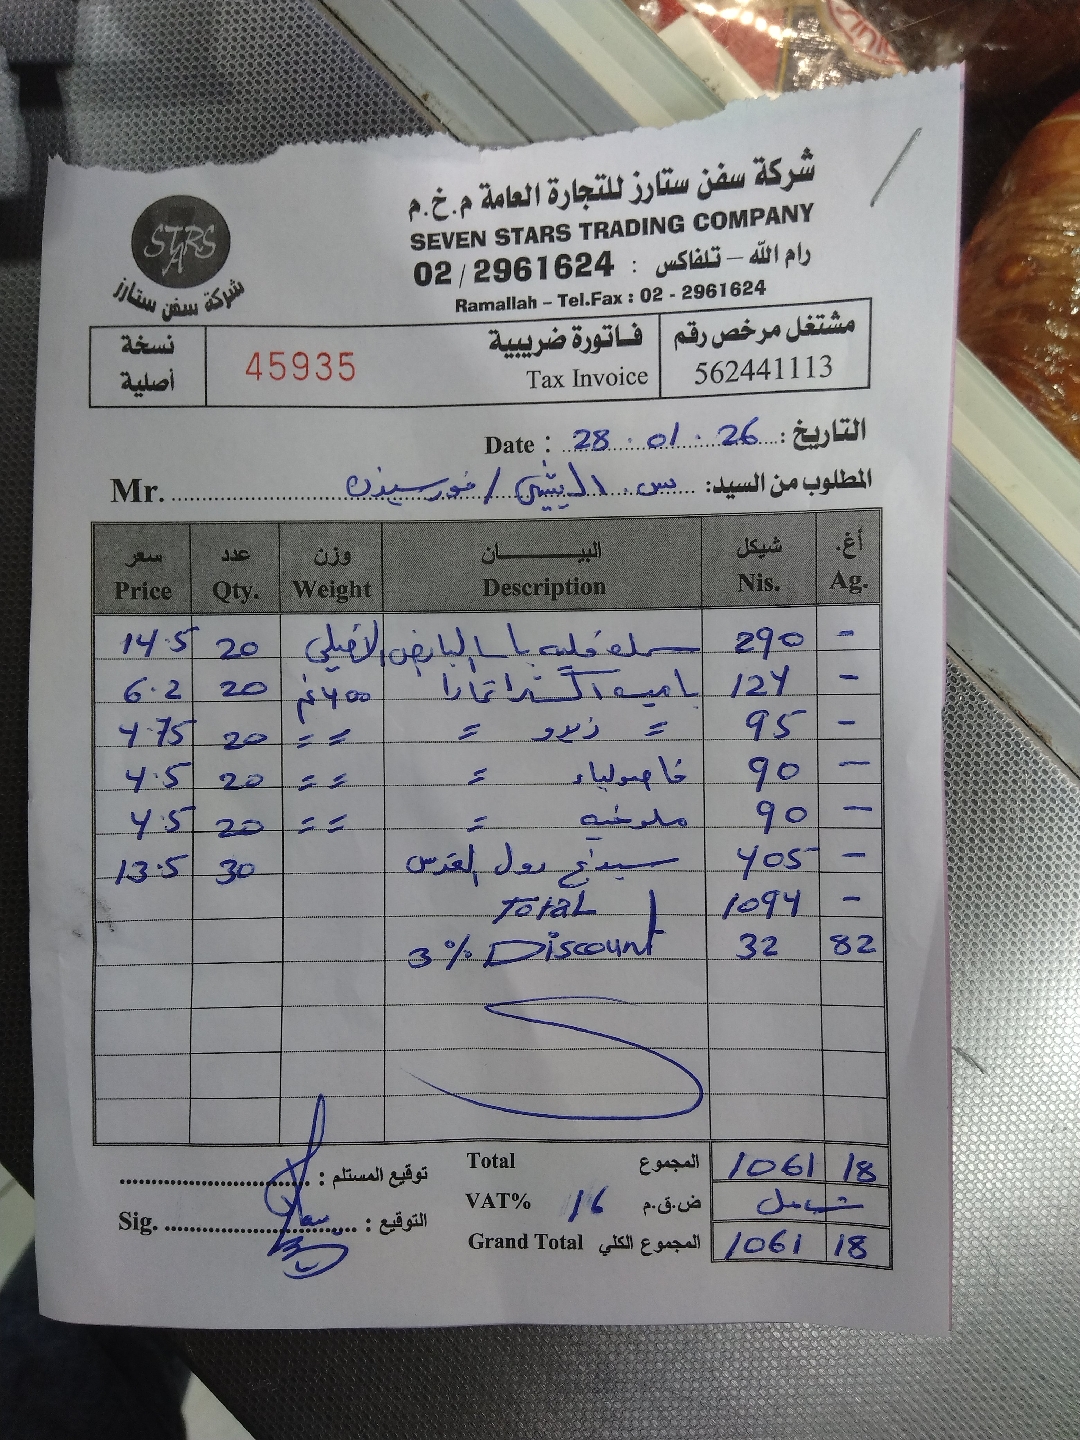 شركة سفن ستارز للتجارة العامة م.خ.م
SEVEN STARS TRADING COMPANY
رام الله – تلفاكس : 02 / 2961624
Ramallah – Tel.Fax : 02 - 2961624
STARS
شركة سفن ستارز
نسخة أصلية
45935
فاتورة ضريبية
Tax Invoice
مشتغل مرخص رقم
562441113
التاريخ : Date : 28 . 01 . 26
المطلوب من السيد: س. / Mr.
سعر عدد وزن البيــــان شيكل أغ.
Price Qty. Weight Description Nis. Ag.
14.5 20 290 -
6.2 20 400غم باميه اكسترا 124 -
4.75 20 = = = = 95 -
4.5 20 = = = فاصولياء 90 -
4.5 20 = = = ملوخيه 90 -
13.5 30 رول القدس 405 -
Total 1094 -
3% Discount 32 82
Total المجموع 1061 18
VAT% 16 ض.ق.م شامل
Grand Total المجموع الكلي 1061 18
توقيع المستلم :
Sig. التوقيع :